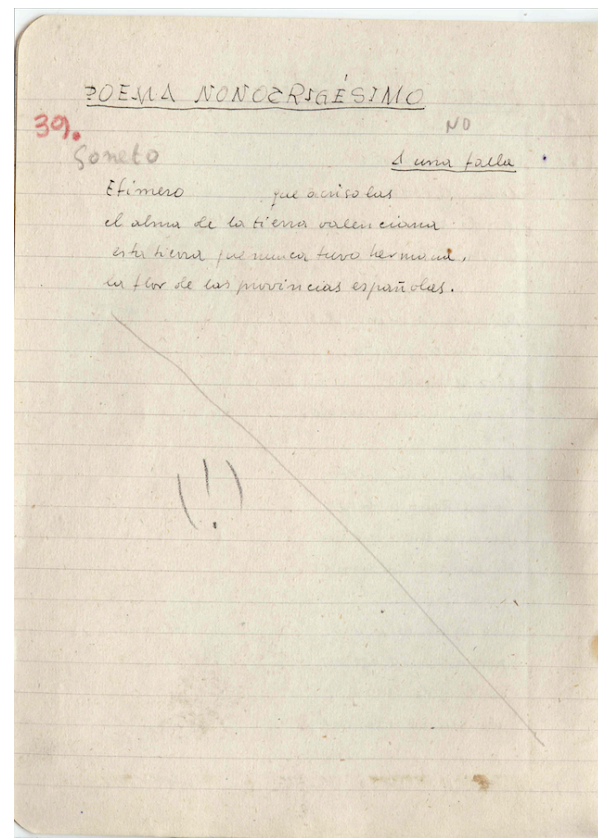 POEMA NONOTRIGÉSIMO
NO
39.
Soneto
A una falla
Efímero que acrisolas
el alma de la tierra valenciana
esta tierra que nunca tuvo hermana,
la flor de las provincias españolas.
(!)